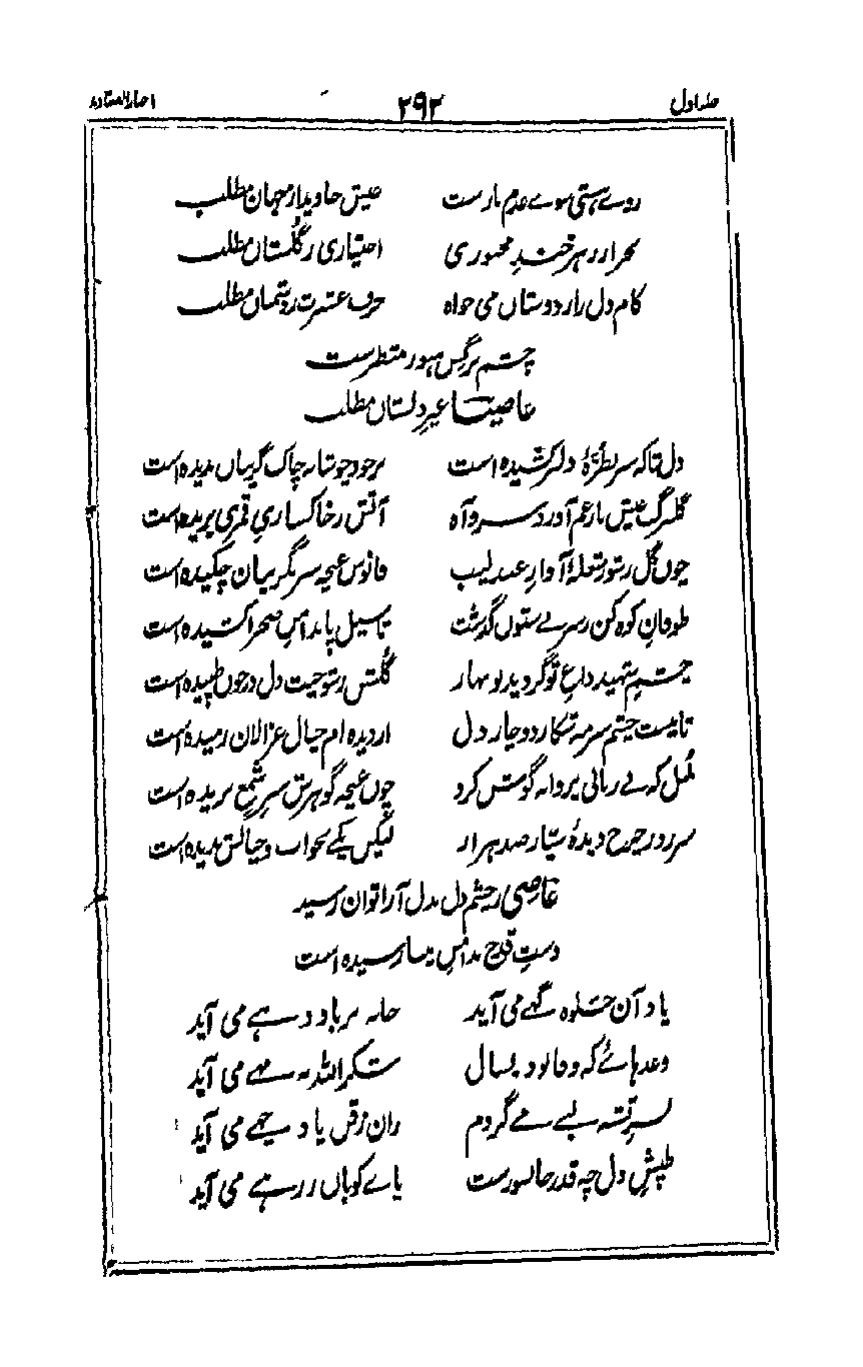 جلد اول ۲۹۲ اخبار الصنادید
روے ہستی سوے عدم بازست عیش جاوید از جہان مطلب
در ہر خندِ مجبوری اختیاری ز گلستاں مطلب
کام دل را ز دوستاں می خواہ حرف عشرت ز دشمناں مطلب
چشم نرگس ہنوز منتظرست
عاصیا غیر دلستاں مطلب
دل تاکہ سر بطرّۂ دلبر کشیدہ است بر خود چو شانہ چاک گریباں ندیدہ است
گلبرگ عیش بار غم آورد سرو آہ آتش ز خاکساریِ قمری پریدہ است
چوں گل ز شور شعلۂ آوازِ عندلیب فانوس غنچہ سر بگریبان چکیدہ است
طوفانِ کوہ کن ز سر بے ستوں گذشت تا سیل پا بدامنِ صحرا کشیدہ است
چشمِ شہید داغِ تو گردید نوبہار گلشن ز شوخیت دل در خوں طپیدہ است
تا بست چشم سرمہ شکار دوچار دل از دیدہ ام خیال غزالان رمیدہ است
بلبل کہ بے زبانی پروانہ گوش کرد چوں غنچہ گوہرش سرِ شمع بریدہ است
سر زد ز چرخ دیدۂ سیّار صد ہزار لیکن یکے بخواب و خیالش ندیدہ است
عاصی ز چشم دل بدل آرا توان رسید
دستِ قدح بدامنِ مینا رسیدہ است
یاد آن جلوہ گہے می آید خانہ بر باد دہے می آید
وعدہائے کہ وفا نود بسال شکر اللہ بہ مہے می آید
تشنہ لبے مے گردم زان زقن یاد چہے می آید
طپشِ دل چہ قدر جانسوزست پاے کوباں ز رہے می آید